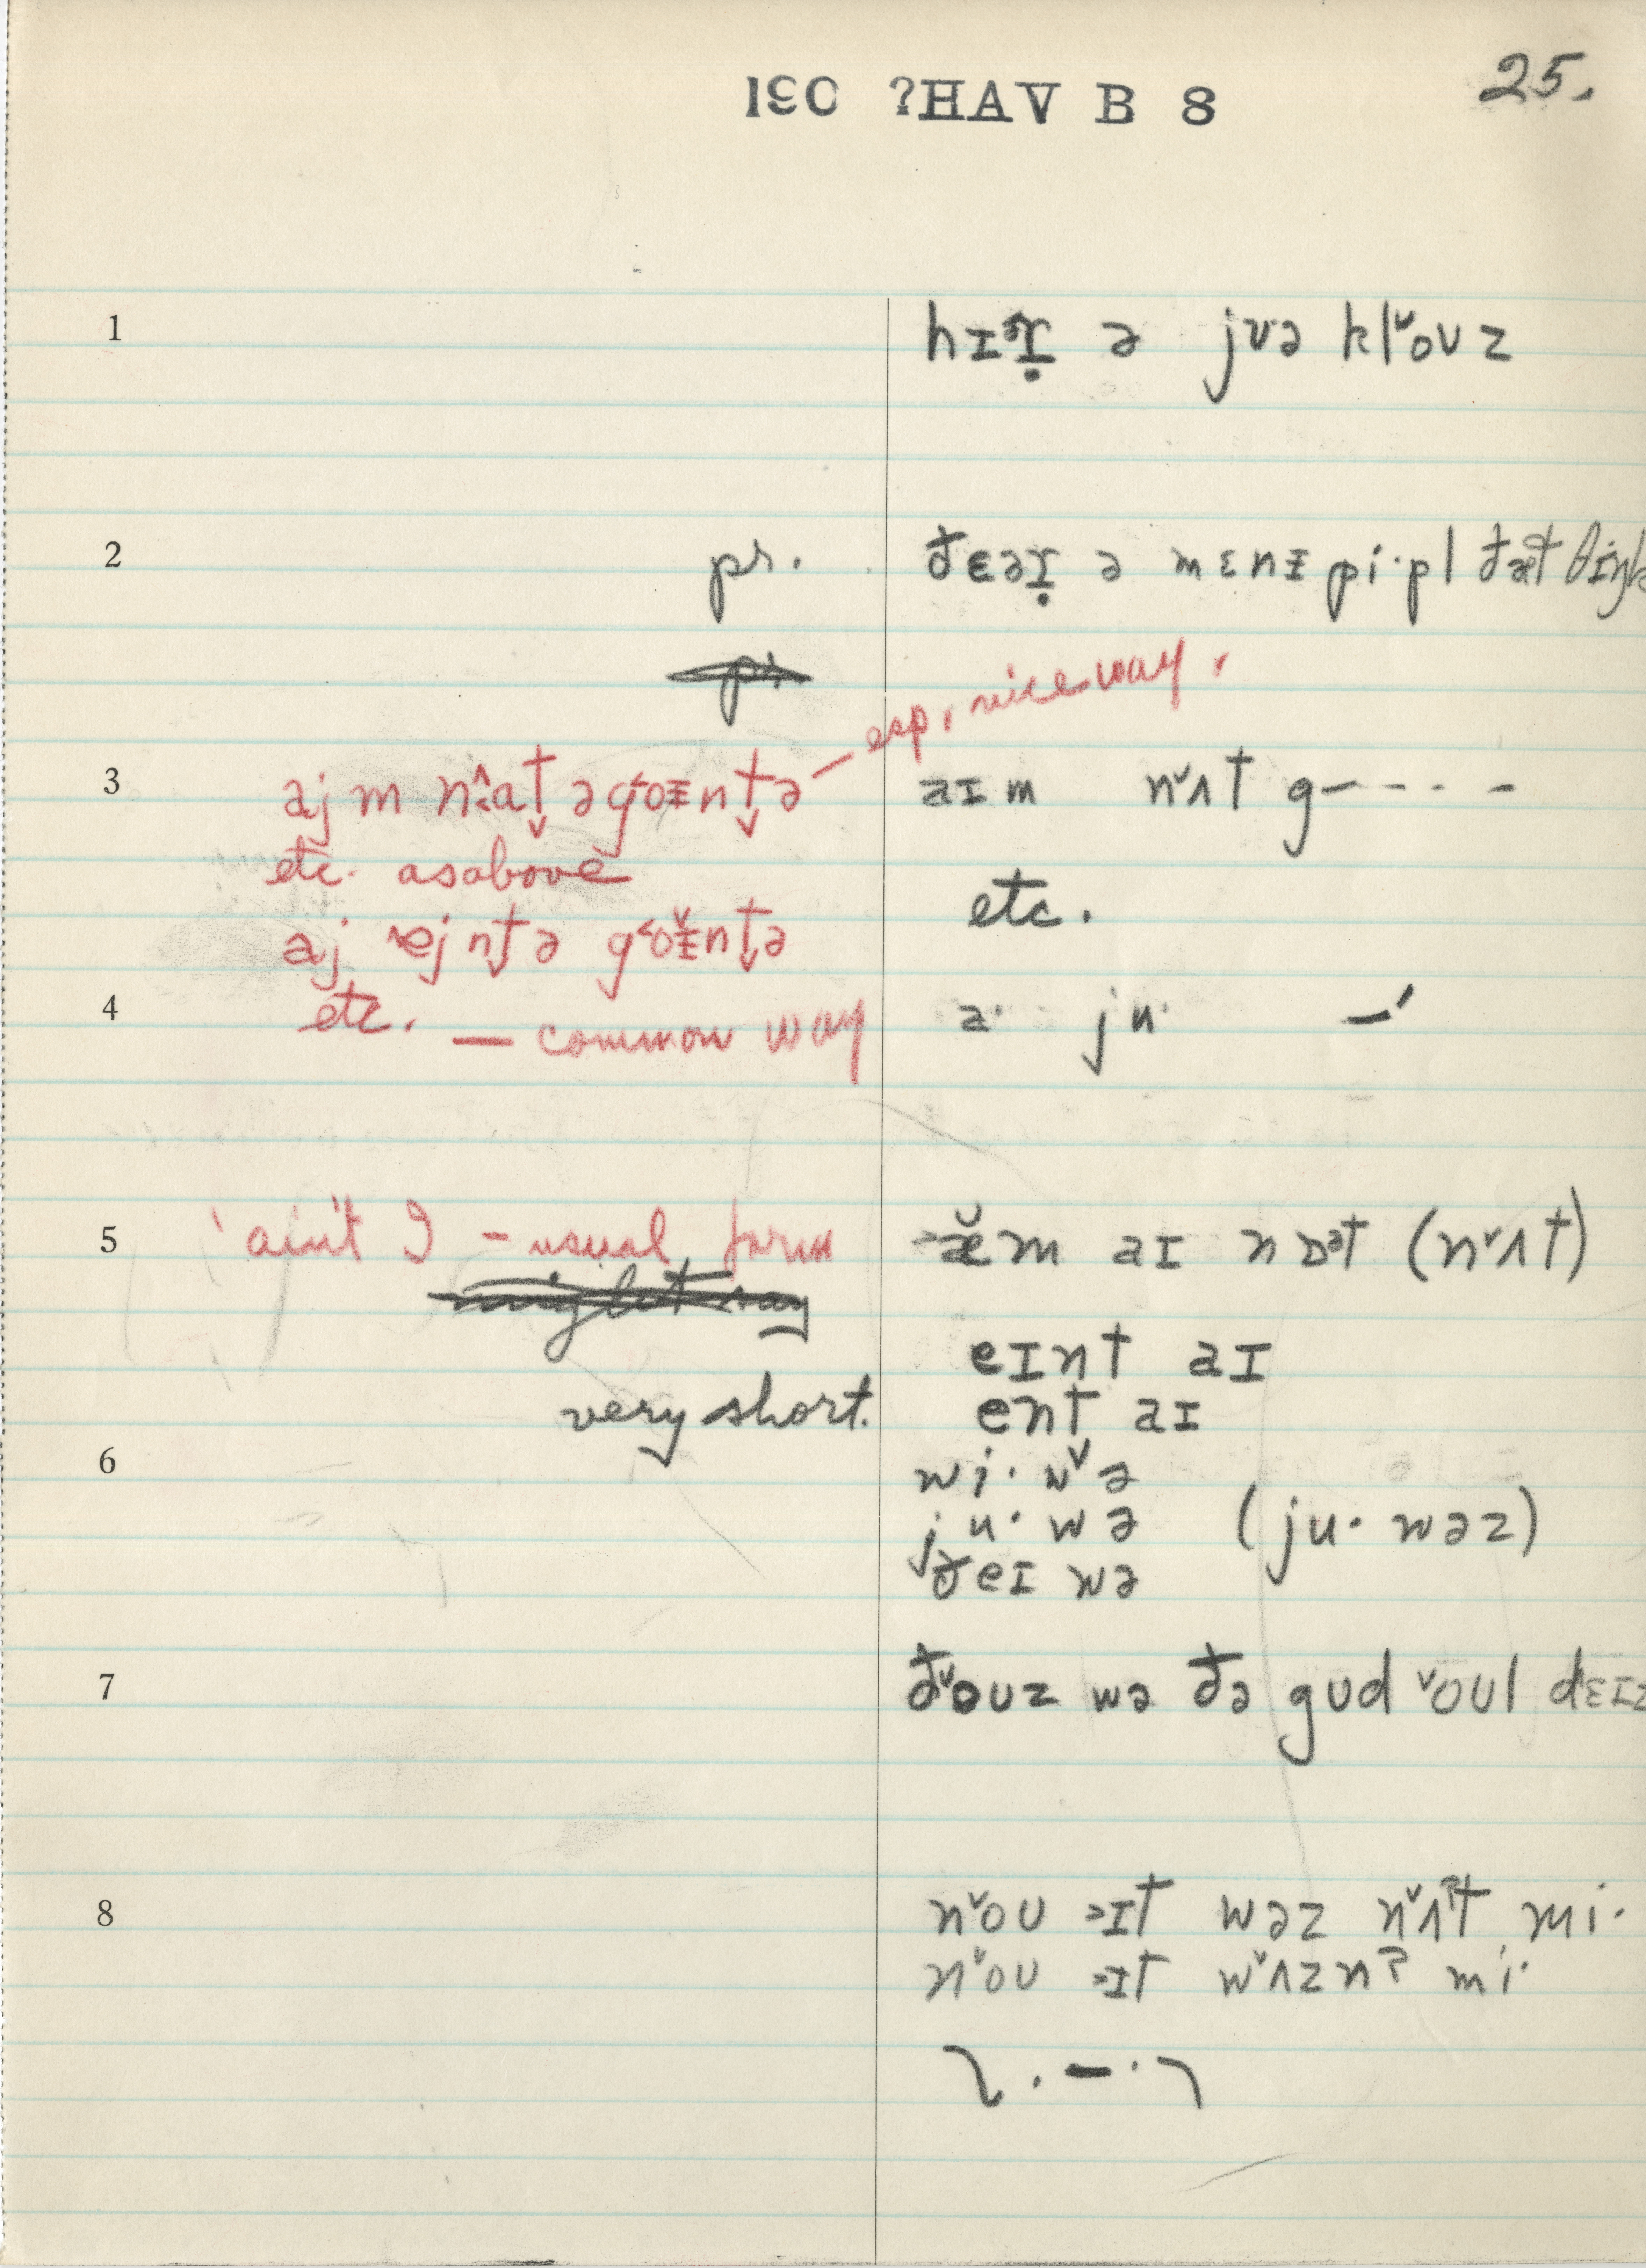 I90 ?HAV B 8
25.
1 hɪɚ ə jʊə kl˅oʊz
2 pr. ðɛəɪ̣ ə mɛnɪ pi·pl ðæt
esp. nice way.
3 ajm ə aɪm n˅ʌt g-----
etc. as above
etc.
aj ə
4 etc. — common way a· ju· –′
5 'ain't I - usual form æ̆m aɪ nɒət (n˅ʌt)
eɪnt aɪ
very short. ent aɪ
6 wi· w˅ə
ju· wə (ju· wəz)
ðeɪ wə
7 ð˅oʊz wə ðə gʊd ˅oʊl dɛɪz
8 n˅oʊ ɪt wəz n˅ʌʔt mi·
n˅oʊ ɪt w˅ʌznʔ mi·